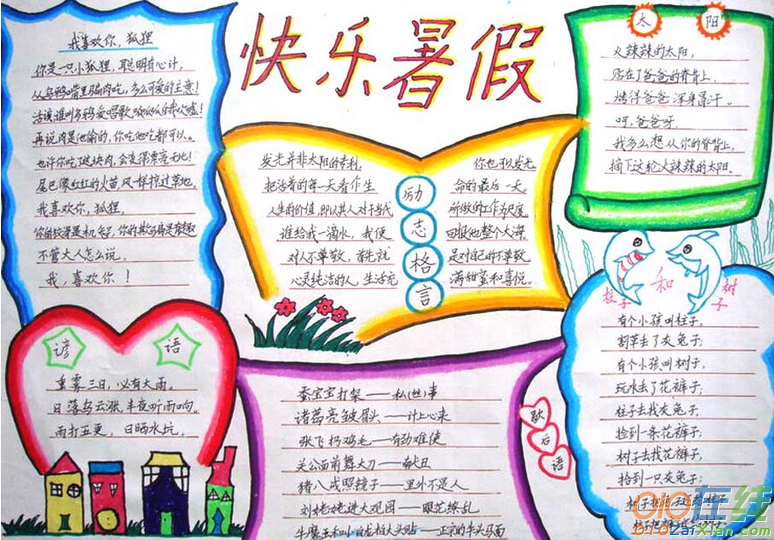 快乐暑假
我喜欢你，狐狸
你是一只小狐狸，聪明有心计，
从乌鸦嘴里骗肉吃，多么可爱的主意！
活该谁叫乌鸦爱唱歌，
再说肉是他偷的，你吃他吃都可以。
也许你吃了这块肉，会变得
尾巴像红红的火苗，风一样掠过草地。
我喜欢你，狐狸
你的狡猾是机智，你的欺骗是有趣
不管大人怎么说，
我，喜欢你！
励志格言
发光并非太阳的专利， 你也可以发光
把活着的每一天看作生 命的最后一天
人生的价值，即以其人对于当代 所做的工作为尺度
谁给我一滴水，我便 回报他整个大海
对人不尊敬，首先就 是对自己的不尊敬
心灵纯洁的人，生活充 满甜蜜和喜悦。
太 阳
火辣辣的太阳，
贴在了爸爸的脊背上，
烤得爸爸浑身冒汗。
呵，爸爸呀，
我多么想从你的脊背上，
摘下这轮火辣辣的太阳。
谚 语
重雾三日，必有大雨。
日落乌云涨，半夜听雨响。
雨打五更，日晒水坑。
歇后语
蚕宝宝打架——私(丝)事
诸葛亮皱眉头——计上心来
张飞扔鸡毛——有劲难使
关公面前舞大刀——献丑
猪八戒照镜子——里外不是人
刘姥姥进大观园——眼花缭乱
牛魔王和小白龙拍大头贴——正宗的牛头马面
柱子 和 树子
有个小孩叫柱子，
割草去了灰兔子；
有个小孩叫树子，
玩水去了花裤子；
柱子去找灰兔子，
捡到一条花裤子；
树子去找花裤子，
拾到一只灰兔子；
010在线
010ZaiXian.com